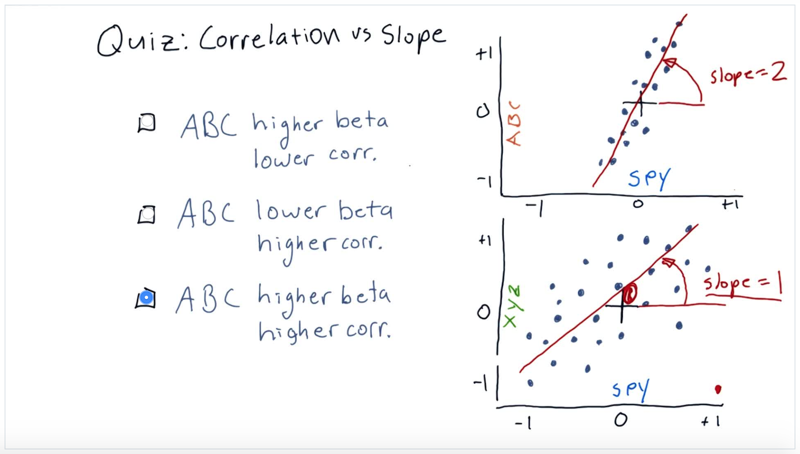 Quiz: Correlation vs Slope
ABC higher beta
lower corr.
ABC lower beta
higher corr.
ABC higher beta
higher corr.
+1
0
-1
ABC
slope=2
SPY
-1
0
+1
+1
0
-1
XYZ
slope=1
SPY
-1
0
+1